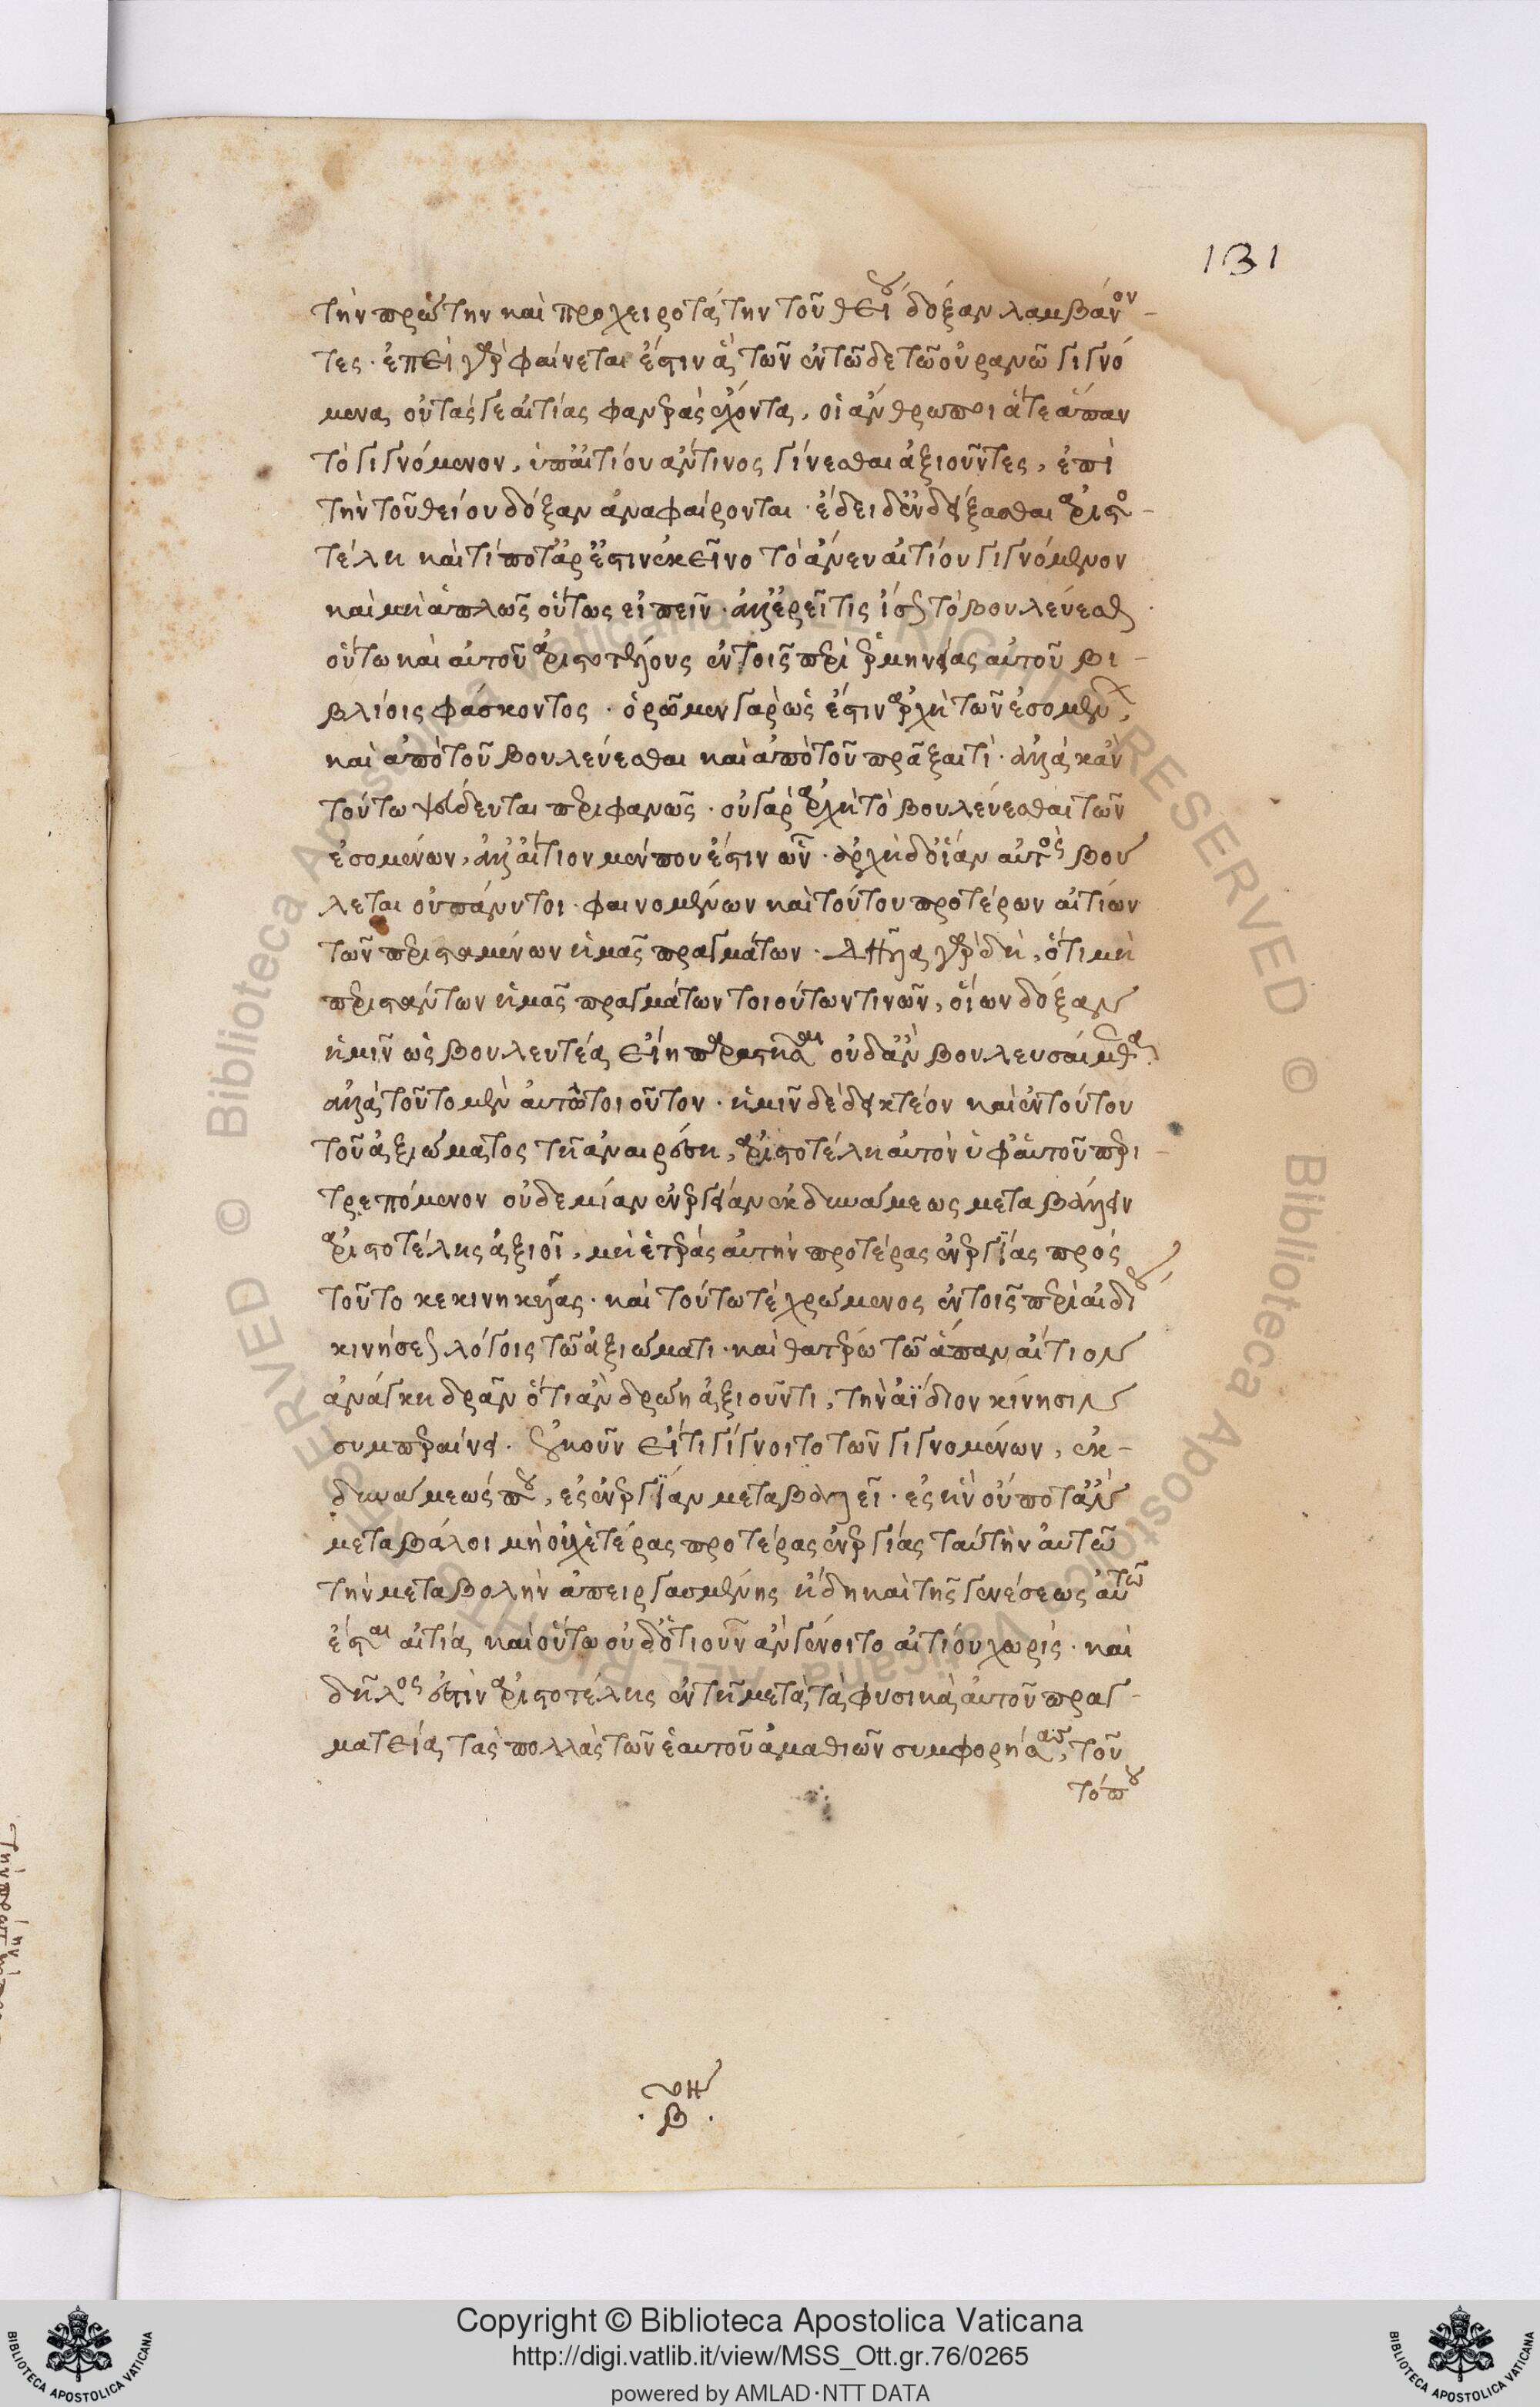 131
τὴν πρώτην καὶ προχειροτάτην τοῦ θείου δόξαν λαμβάνον-
τες· ἐπεὶ γὰρ φαίνεται ἔστιν ἃ τῶν ἐν τῶδε τῶ οὐρανῶ γιγνό
μενα, οὔ τάς γε αἰτίας φανερὰς ἔχοντα, οἱ ἄνθρωποι ἅτε ἅπαν
τὸ γιγνόμενον, ὑπ' αἰτίου ἄν τινος γίνεσθαι ἀξιοῦντες, ἐπὶ
τὴν τοῦ θείου δόξαν ἀναφαίρονται· ἔδει δ' οὖν δεῖξασθαι ἀριστο-
τέλη καὶ τί ποτ' ἄρ' ἔστιν ἐκεῖνο τὸ ἄνευ αἰτίου γιγνόμενον
καὶ μὴ ἁπλῶς οὕτως εἰπεῖν· ἀλλ' ἐρεῖ τις ἴσως τὸ βουλεύεσθαι
οὕτω καὶ αὐτοῦ ἀριστοτέλους ἐν τοῖς περὶ ἑρμηνείας αὐτοῦ βι-
βλίοις φάσκοντος· ὁρῶμεν γὰρ ὡς ἔστιν ἀρχὴ τῶν ἐσομένων,
καὶ ἀπὸ τοῦ βουλεύεσθαι καὶ ἀπὸ τοῦ πρᾶξαι τὶ· ἀλλὰ κἀν
τούτω ψεύδεται περιφανῶς· οὐ γὰρ ἀρχὴ τὸ βουλεύεσθαι τῶν
ἐσομένων, ἀλλ' αἴτιον μέν που ἔστιν ὧν· ἀρχὴ δ' οἵαν αὐτὸς βού
λεται οὐ πάνυ τοι· φαινομένων καὶ τούτου προτέρων αἰτίων
τῶν περισταμένων ἡμᾶς πραγμάτων· δῆλα γὰρ δὴ, ὅτι μὴ
περιστάντων ἡμᾶς πραγμάτων τοιούτων τινῶν, οἵων δόξαν
ἡμῖν ὡς βουλευτέα εἴη παραστῆναι οὐδ' ἂν βουλευσαίμεθα,
ἀλλὰ τοῦτο μὲν αὐτῶ τοιοῦτον· ἡμῖν δὲ δεικτέον καὶ ἐν τούτου
τοῦ ἀξιώματος τῆ ἀναιρέσει, ἀριστοτέλη αὐτὸν ὑφ' αὑτοῦ περι-
τρεπόμενον οὐδεμίαν ἐνέργειαν ἐκ δυνάμεως μεταβάλλειν
ἀριστοτέλης ἀξιοῖ, μὴ ἑτέρας αὐτὴν προτέρας ἐνεργείας πρὸς
τοῦτο κεκινηκείας· καὶ τούτω τὲ χρώμενος ἐν τοῖς περὶ ἀιδίου
κινήσεως λόγοις τῶ ἀξιώματι· καὶ θατέρω τῶ ἅπαν αἴτιον
ἀνάγκη δρᾶν ὅτι ἂν δρώη ἀξιοῦντι, τὴν ἀΐδιον κίνησιν
συμπεραίνει. οὐκοῦν εἴ τι γίγνοιτο τῶν γιγνομένων, ἐκ-
δυνάμεώς που, ἐς ἐνέργειαν μεταβάλλει· ἐς ἣν οὔποτ' ἂν
μεταβάλοι μὴ οὐχ ἑτέρας προτέρας ἐνεργείας ταύτην αὐτῶ
τὴν μεταβολὴν ἀπειργασμένης ἤδη καὶ τῆς γενέσεως αὐτῶ
ἔσται αἰτία, καὶ οὕτω οὐδ' ὁτιοῦν ἂν γένοιτο αἰτίου χωρίς· καὶ
δῆλός ἐστιν ἀριστοτέλης ἐν τῆ μετὰ τὰ φυσικὰ αὐτοῦ πραγ-
ματεία, τὰς πολλὰς τῶν ἑαυτοῦ ἀμαθιῶν συμφορήσας, τοῦ
τόπου
Copyright © Biblioteca Apostolica Vaticana
http://digi.vatlib.it/view/MSS_Ott.gr.76/0265
powered by AMLAD·NTT DATA